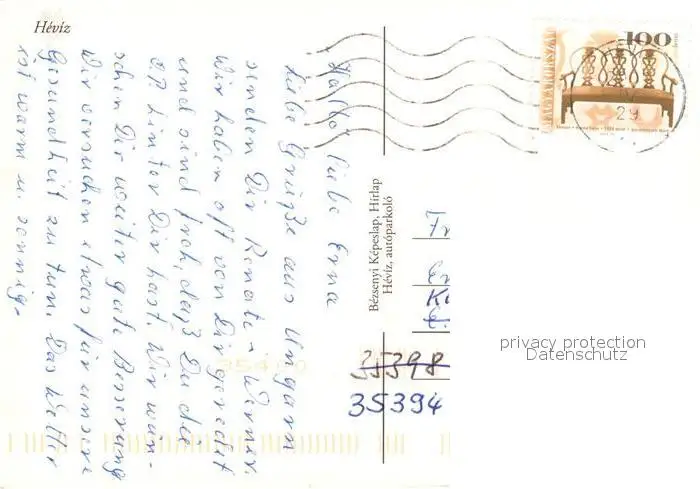 Hévíz
Hallo liebe Erna
Liebe Grüße aus Ungarn
senden Dir Renate u. Werner.
Wir haben oft von Dir geredet
und sind froh, daß Du die
OP hinter Dir hast. Wir wün-
schen Dir weiter gute Besserung
Wir versuchen etwas für unsere
Gesundheit zu tun. Das Wetter
ist warm u. sonnig.
Bézsenyi Képeslap, Hírlap
Hévíz, autóparkoló
MAGYARORSZÁG
100
29
Fr
Er
35398
35394
35400
privacy protection
Datenschutz